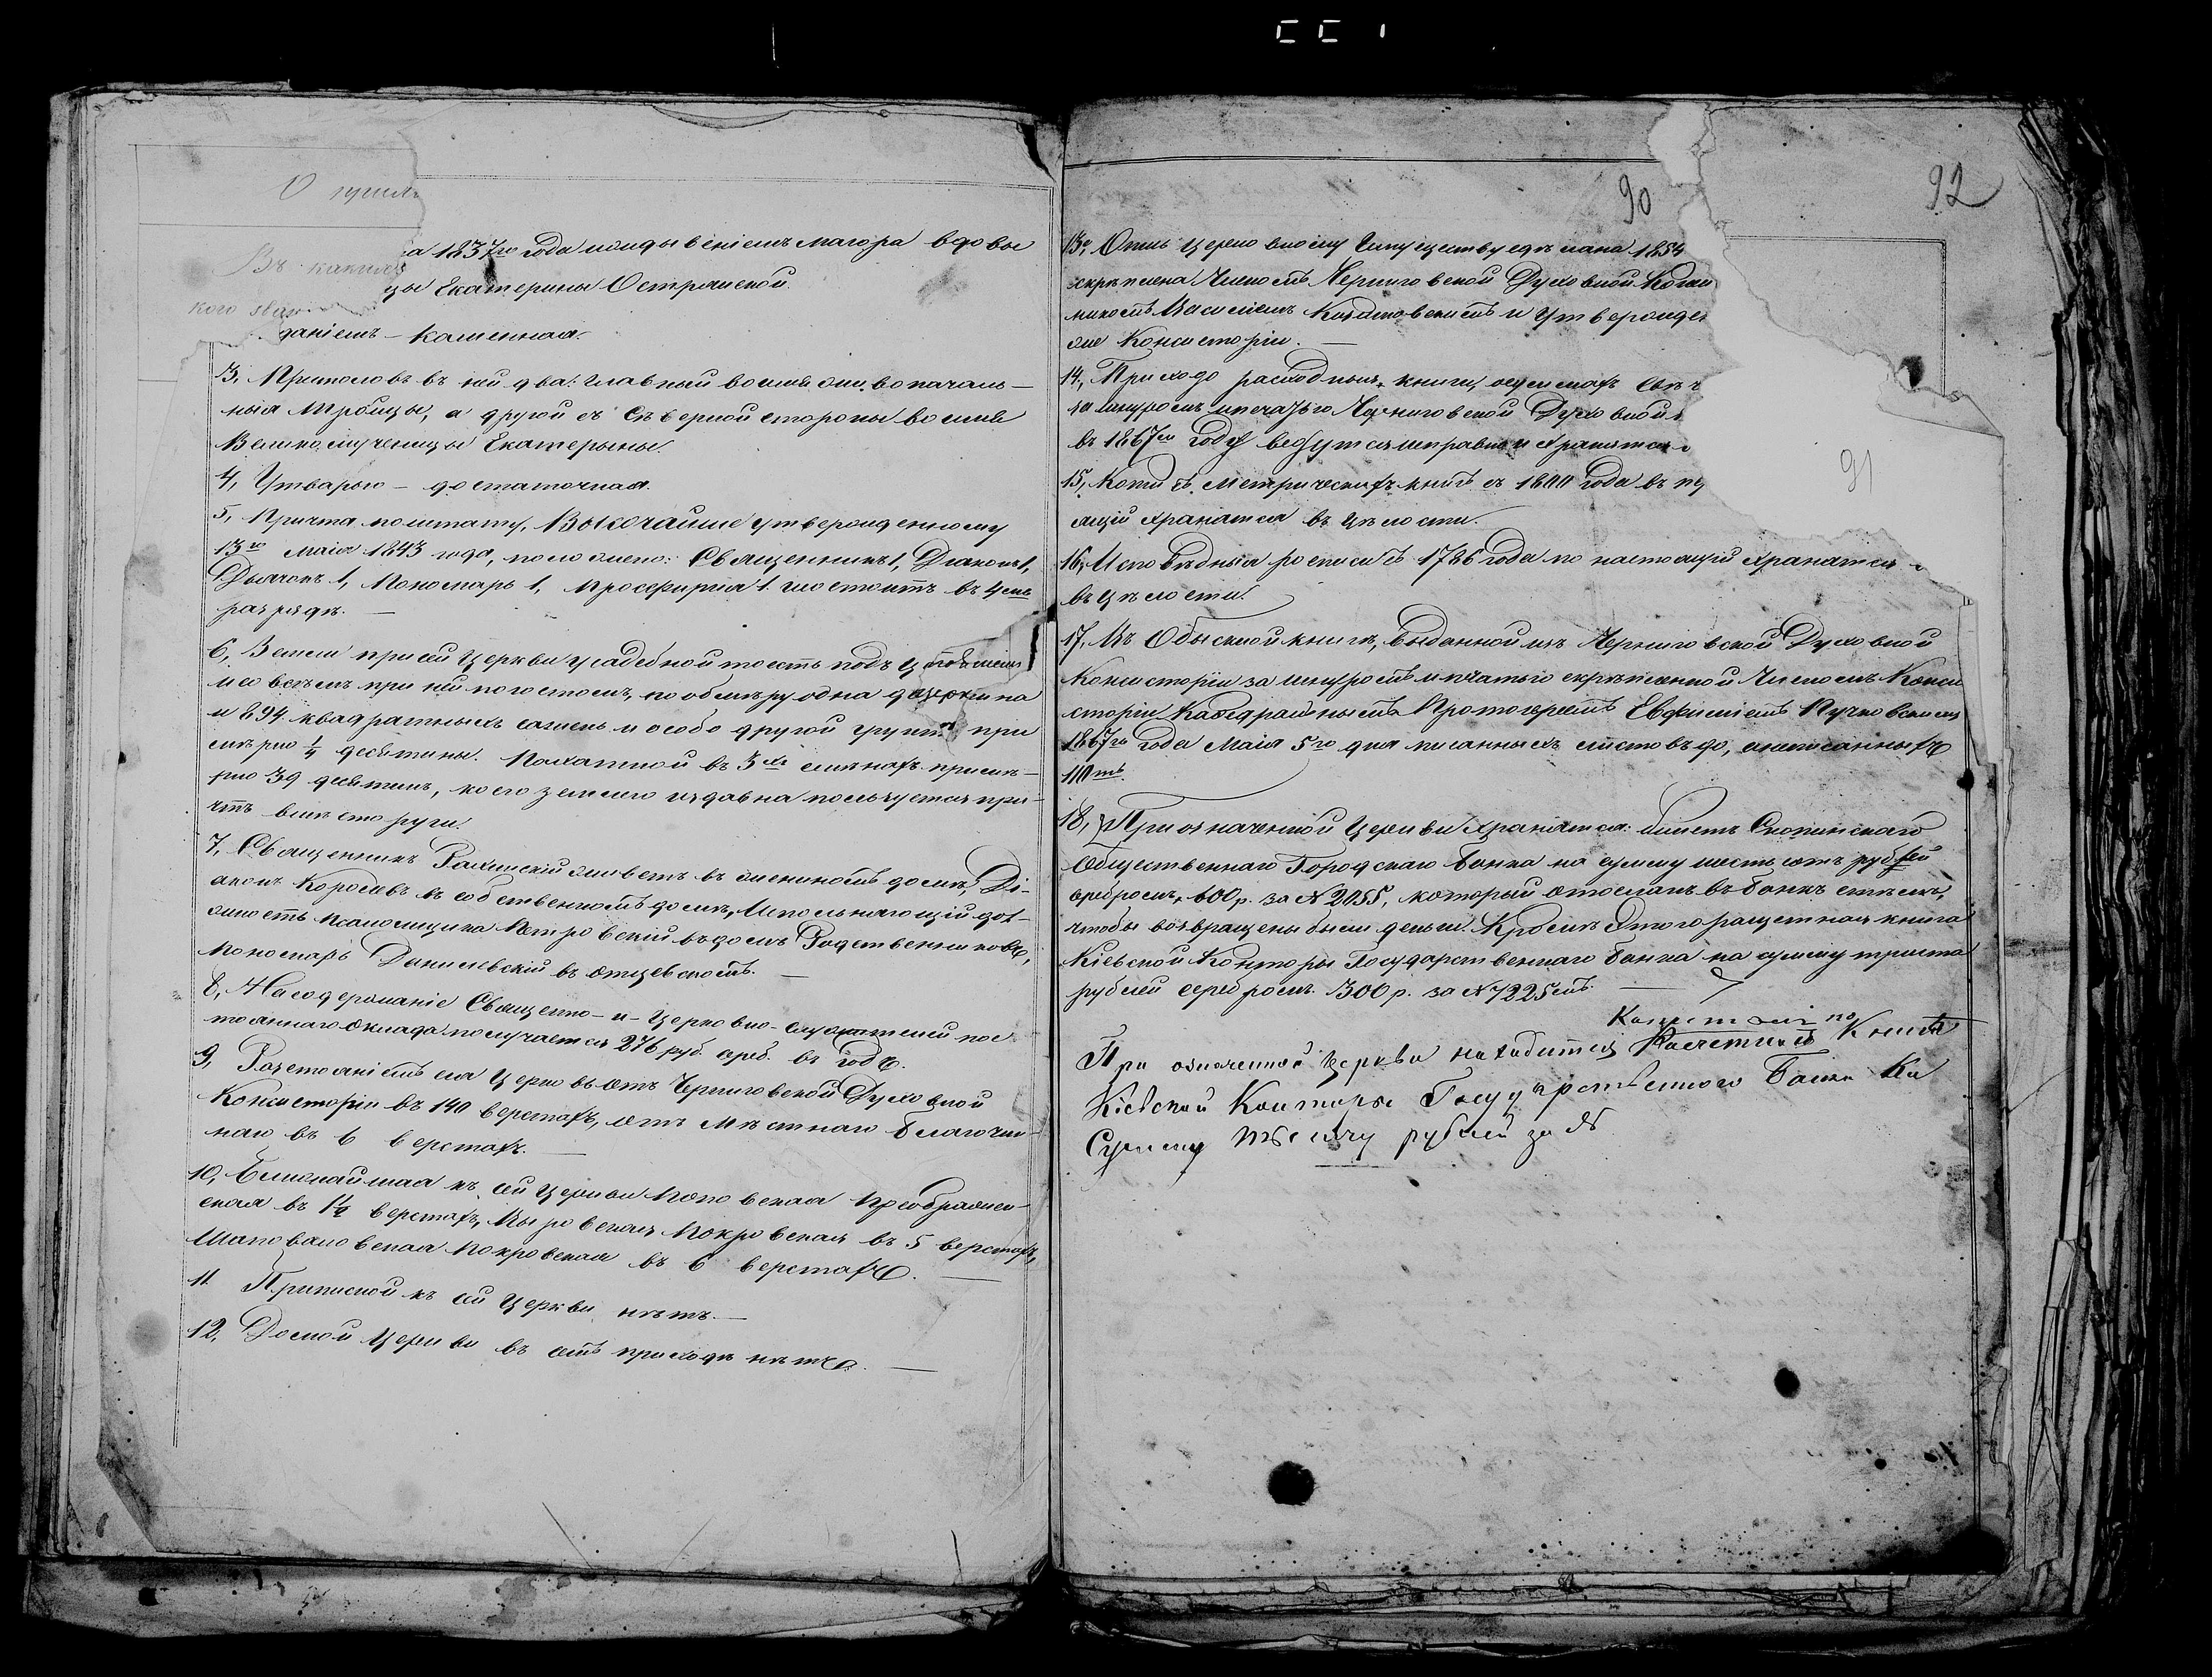 О прич
Въ каких
кого stан
а 1837го года иждывеніемъ маіора вдовы
цы Екатерины Остранской.
даніемъ – каменная.
3, Престоловъ въ ней два: главный во имя живоначаль-
ныя Тройцы, а другой съ Сѣверной стороны во имя
Великомученицы Екатерыны.
4, Утварью – достаточная.
5, Причта по штату, Высочайше утвержденному
13го Маія 1843 года, положено: Священникъ 1, Діаконъ 1,
Дьячокъ 1, Пономарь 1, Просфирня 1. и состоитъ въ 4мъ
разрядѣ. –
6, Земли при сей Церкви усадебной то есть подъ Ц
и со всѣмъ при ней погостомъ, по обмѣру одна десятина
и 894 квадратныхъ сажень и особо другой грунтъ при
мѣрно 1/4 десятины. Пахатной въ 3хъ смѣнахъ примѣ-
рно 39 десятинъ, коего землею издавна пользуется при-
чтъ вмѣсто руги.
7, Священникъ живетъ въ домѣ, Ді-
аконъ Королевъ въ собственномъ домѣ, Исполняющій дол-
жность псаломщика Петровскій въ домѣ Родственниковъ,
Пономарь Данилевскій въ отцевскомъ. –
8, На содержаніе Священно-и-Церковно-служителей пос
тояннаго оклада получается 276 руб. сереб. въ годъ.
9, Разстояніемъ сія Церковь отъ Черниговской Духовной
Консисторіи въ 140 верстахъ, отъ Мѣстнаго благочин-
наго въ 6 верстахъ. –
10, Ближайшая къ сей Церкви Поповская Преображен-
ская въ 1 1/2 верстахъ, Выровская Покровская въ 5 верстахъ,
Шаповаловская Покровская въ 6 верстахъ. –
11. Приписной къ сей Церкви нѣтъ. –
12, Домой Церкви въ семъ приходѣ нѣтъ. –
90
92
91
13, Опись церковному имуществу сдѣлана 1854
скрѣплена Членомъ Черниговской Духовной Конси
никомъ Василіемъ и Утвержден
же Консисторіи. –
14, Приходо расходныя книги
за шнуромъ и печатью Черниговской Духовной
въ 1867м году ведутся исправно и хранятся
15, Копіи съ Метрическихъ книгъ съ 1800 года въ
ящій хранятся въ цѣлости.
16, Исповѣдныя росписи съ 1786 года по настоящій хранятся
въ цѣлости.
17, Въ Обыскной книгѣ, выданной изъ Черниговской Духовной
Консисторіи за шнуромъ и печатью скрѣпленной Членомъ Конси
сторіи Каѳедральнымъ Протоіереемъ Евфиміемъ Пучковскимъ
1867го года Маія 5го дня писанныхъ листовъ до, неписанныхъ
110ть.
18, При означенной Церкви хранятся: билетъ Скопинскаго
Общественнаго Городскаго Банка на сумму шестьсотъ рублей
серебромъ, 600 р. за № 2055, который отосланъ въ банкъ съ тѣмъ,
чтобы возвращены были деньги. Кромѣ этого расщетная книга
Кіевской Конторы Государственнаго Банка на сумму триста
рублей серебромъ. 300 р. за № 7225мъ. –
Капиталъ по
При означенной Церкви находится Расчетной Книгѣ
Кіевской Конторы Государственного Банка На
Сумму Тысячу рублей за №